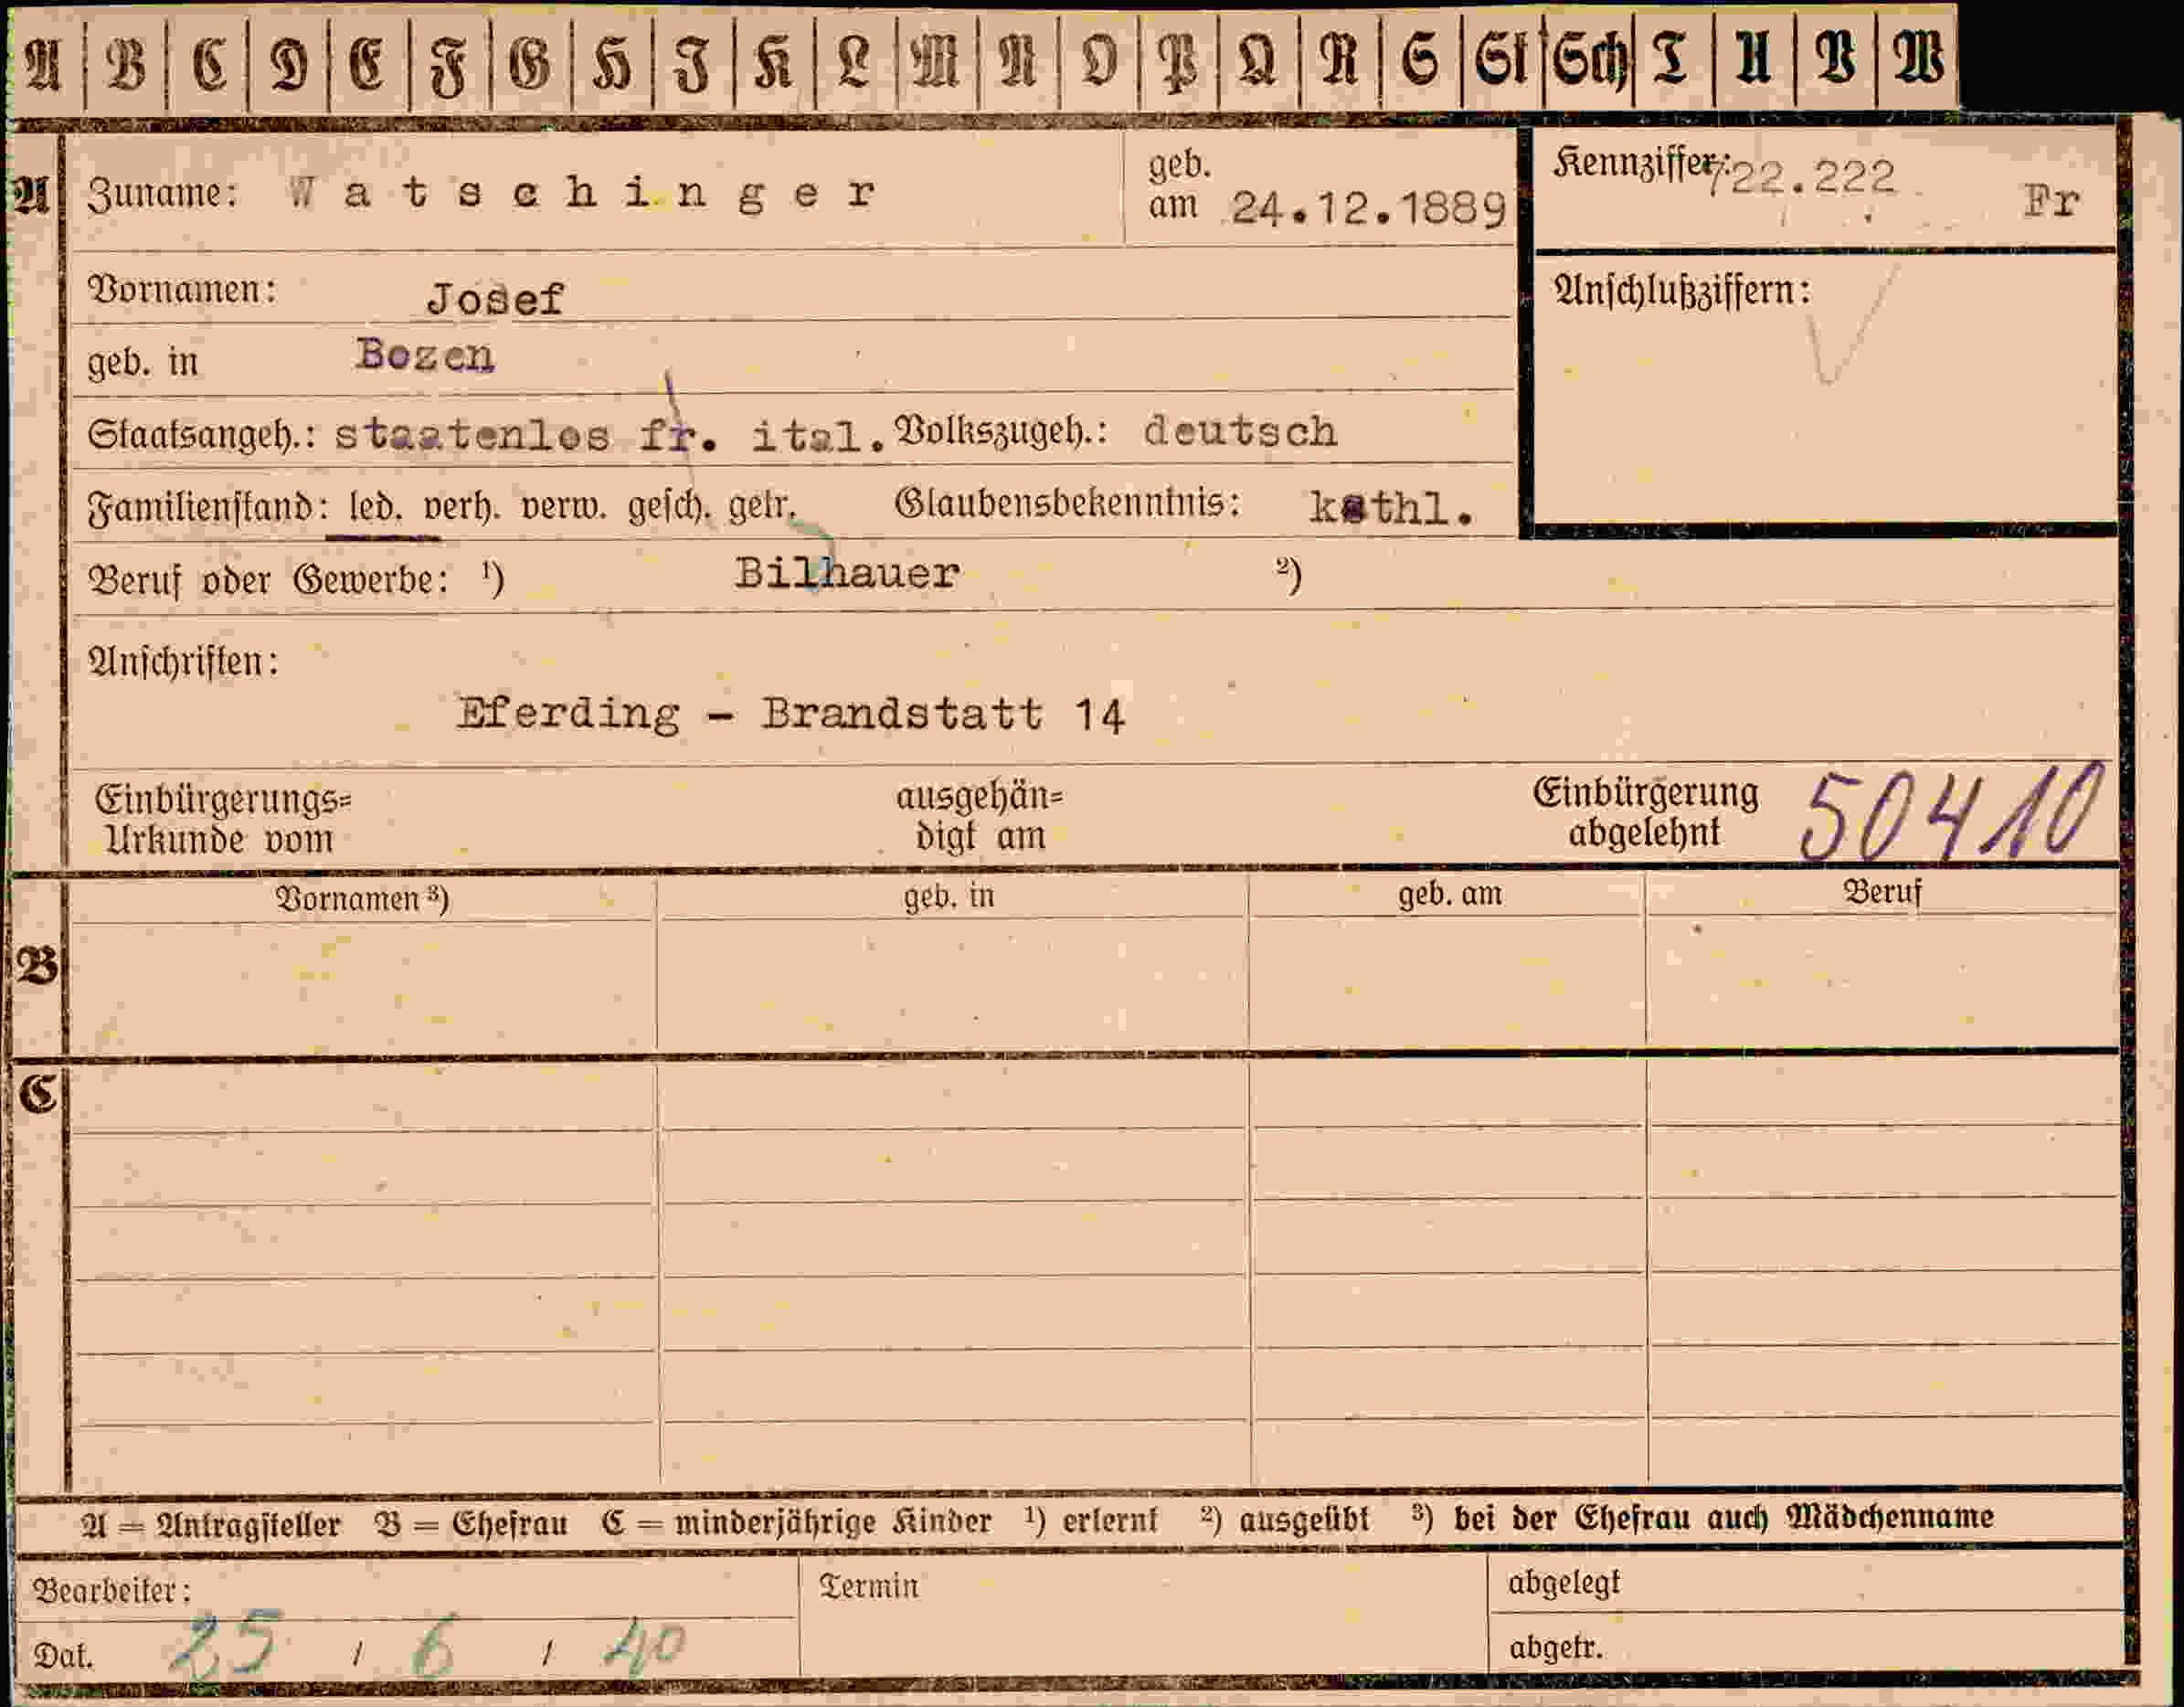 A B C D E F G H I K L M N O P Q R S St Sch T U V W
A Zuname: Watschinger geb. am 24.12.1889 Kennziffer: 722.222 Fr
Vornamen: Josef Anschlußziffern:
geb. in Bozen
Staatsangeh.: staatenlos fr. ital. Volkszugeh.: deutsch
Familienstand: led. verh. verw. gesch. getr. Glaubensbekenntnis: kathl.
Beruf oder Gewerbe: ¹) Bilhauer ²)
Anschriften:
Eferding - Brandstatt 14
Einbürgerungs= ausgehän= Einbürgerung 50410
Urkunde vom digt am abgelehnt
Vornamen ³) geb. in geb. am Beruf
B
C
A = Antragsteller B = Ehefrau C = minderjährige Kinder ¹) erlernt ²) ausgeübt ³) bei der Ehefrau auch Mädchenname
Bearbeiter: Termin abgelegt
Dat. 25 / 6 / 40 abgetr.